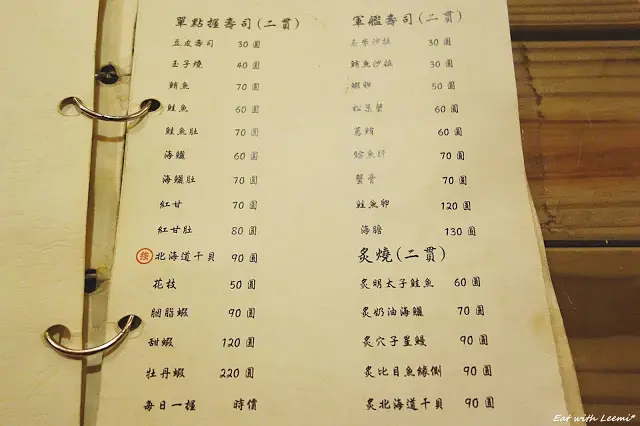 單點握壽司(二貫)
豆皮壽司 30圓
玉子燒 40圓
鮪魚 70圓
鮭魚 60圓
鮭魚肚 70圓
海鱺 60圓
海鱺肚 70圓
紅甘 70圓
紅甘肚 80圓
推 北海道干貝 90圓
花枝 50圓
胭脂蝦 90圓
甜蝦 120圓
牡丹蝦 220圓
每日一握 時價
軍艦壽司(二貫)
玉米沙拉 30圓
鮪魚沙拉 30圓
蝦卵 50圓
松葉蟹 60圓
蔥鮪 60圓
鮟魚肝 70圓
蟹膏 70圓
鮭魚卵 120圓
海膽 130圓
炙燒(二貫)
炙明太子鮭魚 60圓
炙奶油海鱺 70圓
炙穴子星鰻 90圓
炙比目魚緣側 90圓
炙北海道干貝 90圓
Eat with Leemi*